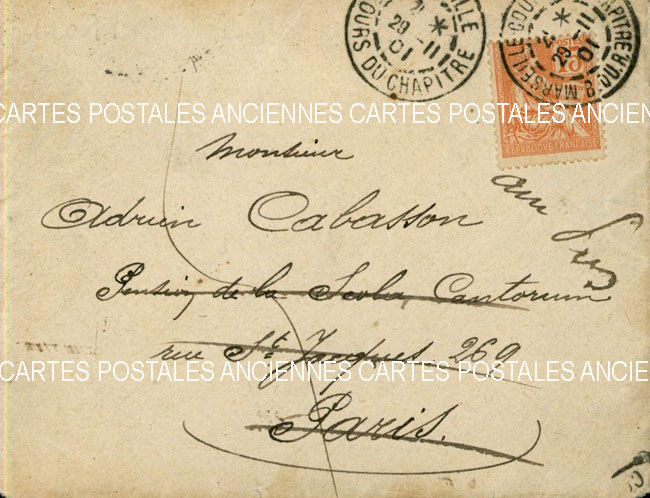 MARSEILLE
29 -11
01
COURS DU CHAPITRE
MARSEILLE COURS DU CHAPITRE
29 -11
01
B. DU R.
POSTES
15
REPUBLIQUE FRANÇAISE
CARTES POSTALES ANCIENNES CARTES POSTALES ANCIENN
Monsieur
au
Adrien Cabasson
Pension de la Scola Cantorum
rue St Jacques 269
CARTES POSTALES ANCIENNES CARTES POSTALES ANCIEN
Paris.